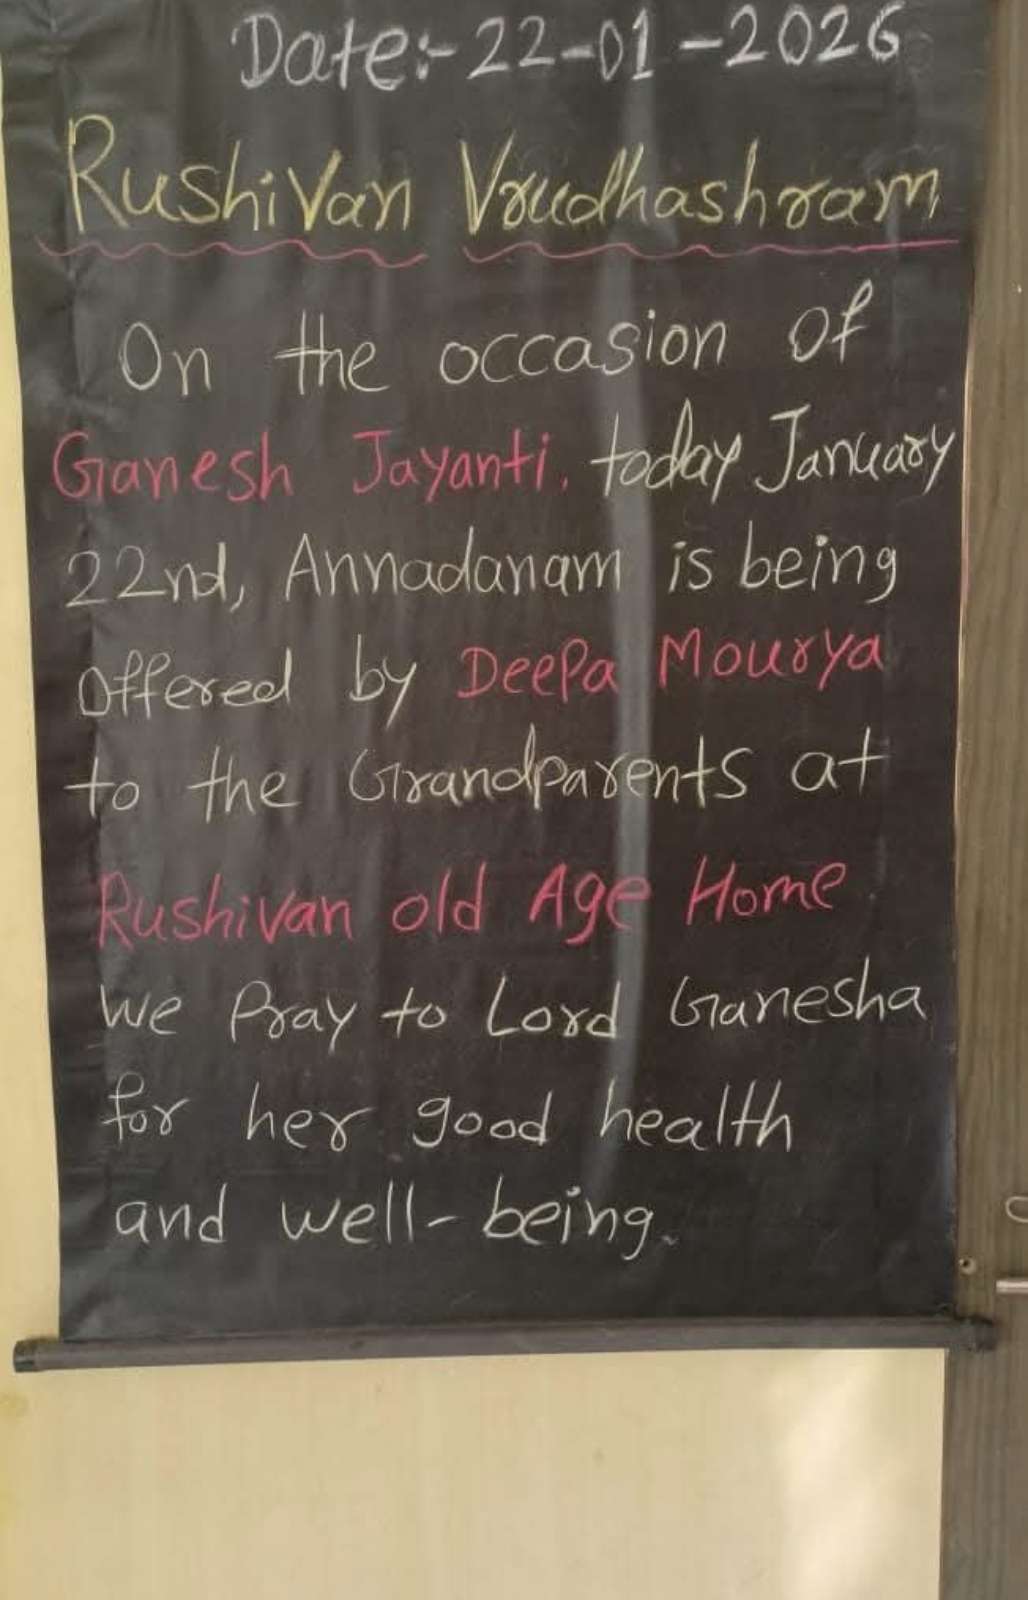 Date:- 22-01-2026
Rushivan Vrudhashram
On the occasion of
Ganesh Jayanti, today January
22nd, Annadanam is being
offered by Deepa Mourya
to the Grandparents at
Rushivan old Age Home
We Pray to Lord Ganesha
for her good health
and well-being.